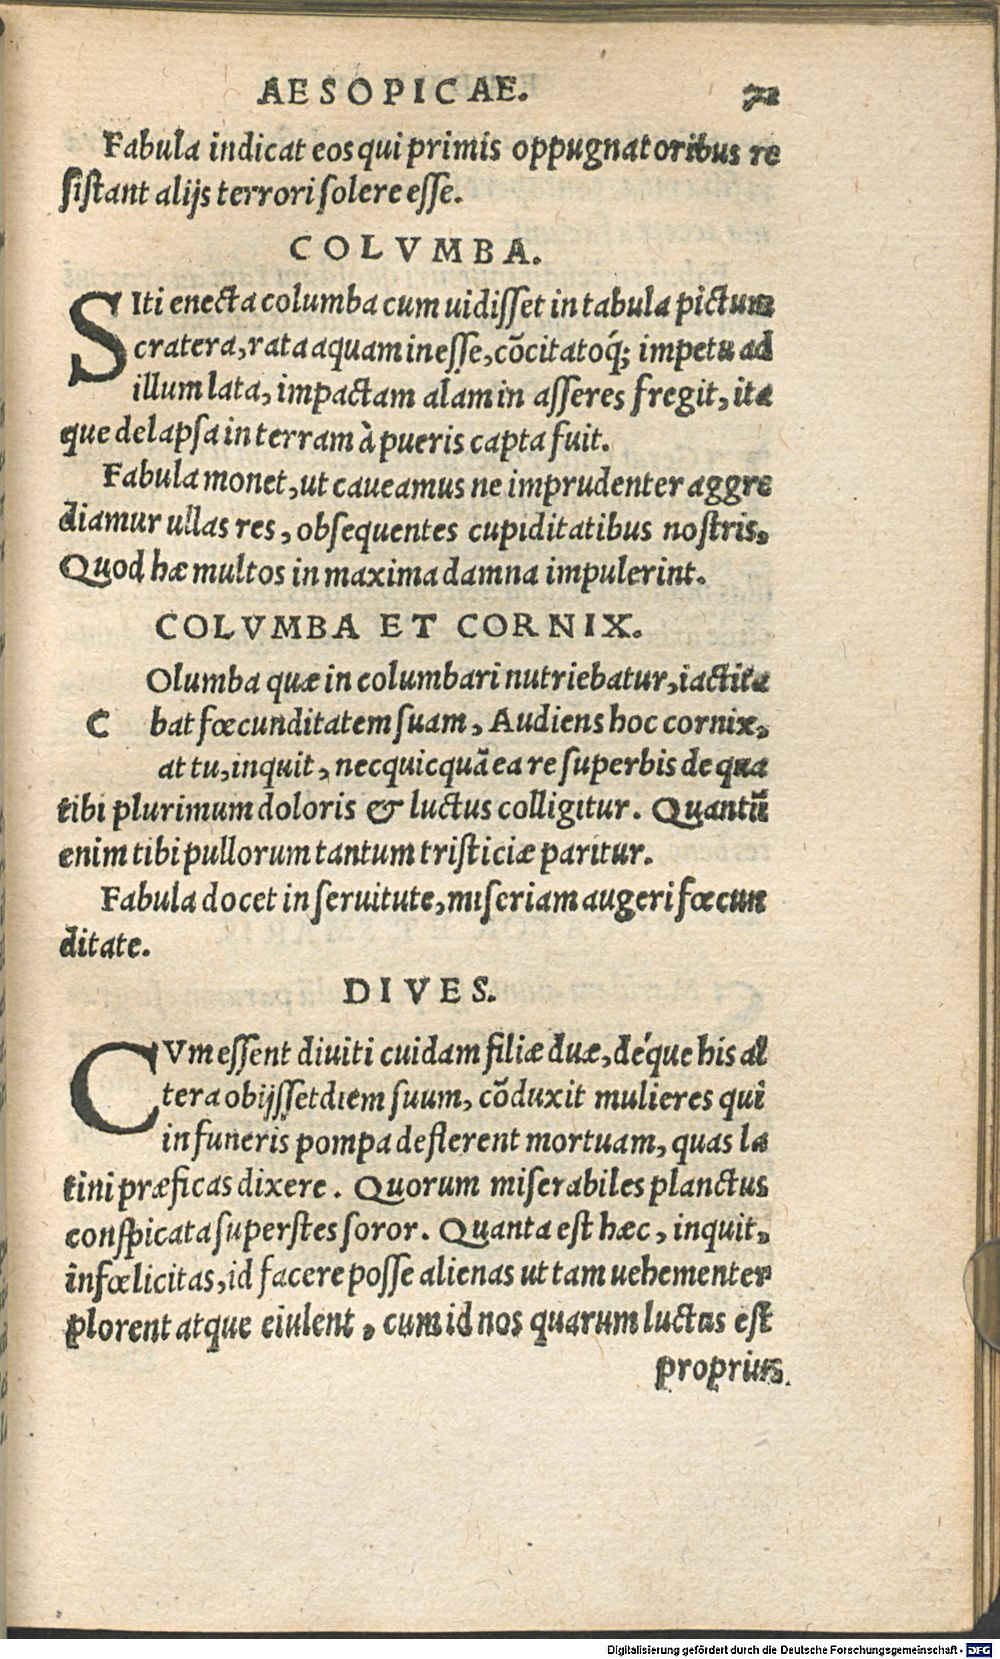 AESOPICAE. 71
Fabula indicat eos qui primis oppugnatoribus re
sistant alijs terrori solere esse.
COLVMBA.
SIti enecta columba cum uidisset in tabula pictum
cratera, rata aquam inesse, cõcitatoq́; impetu ad
illum lata, impactam alam in asseres fregit, ita
que delapsa in terram à pueris capta fuit.
Fabula monet, ut caueamus ne imprudenter aggre
diamur ullas res, obsequentes cupiditatibus nostris.
Quod hæ multos in maxima damna impulerint.
COLVMBA ET CORNIX.
Olumba quæ in columbari nutriebatur, iactita
C bat fœcunditatem suam, Audiens hoc cornix,
at tu, inquit, nec quicquã ea re superbis de qua
tibi plurimum doloris & luctus colligitur. Quantũ
enim tibi pullorum tantum tristiciæ paritur.
Fabula docet in seruitute, miseriam augeri fœcun
ditate.
DIVES.
CVm essent diuiti cuidam filiæ duæ, déque his al
tera obijsset diem suum, cõduxit mulieres qui
in funeris pompa deflerent mortuam, quas la
tini præficas dixere. Quorum miserabiles planctus
conspicata superstes soror. Quanta est hæc, inquit,
infœlicitas, id facere posse alienas ut tam uehementer
plorent atque eiulent, cum id nos quarum luctus est
proprius.
Digitalisierung gefördert durch die Deutsche Forschungsgemeinschaft - DFG